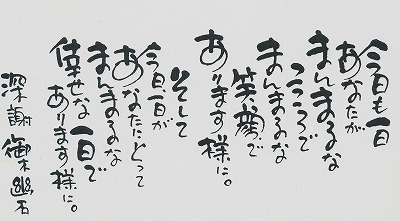 今日も一日
あなたが
まんまるな
こころで
まんまるな
笑顔で
あります様に。
そして
今日一日が
あなたにとって
まんまるな
倖せな一日で
あります様に。
深謝 御木幽石